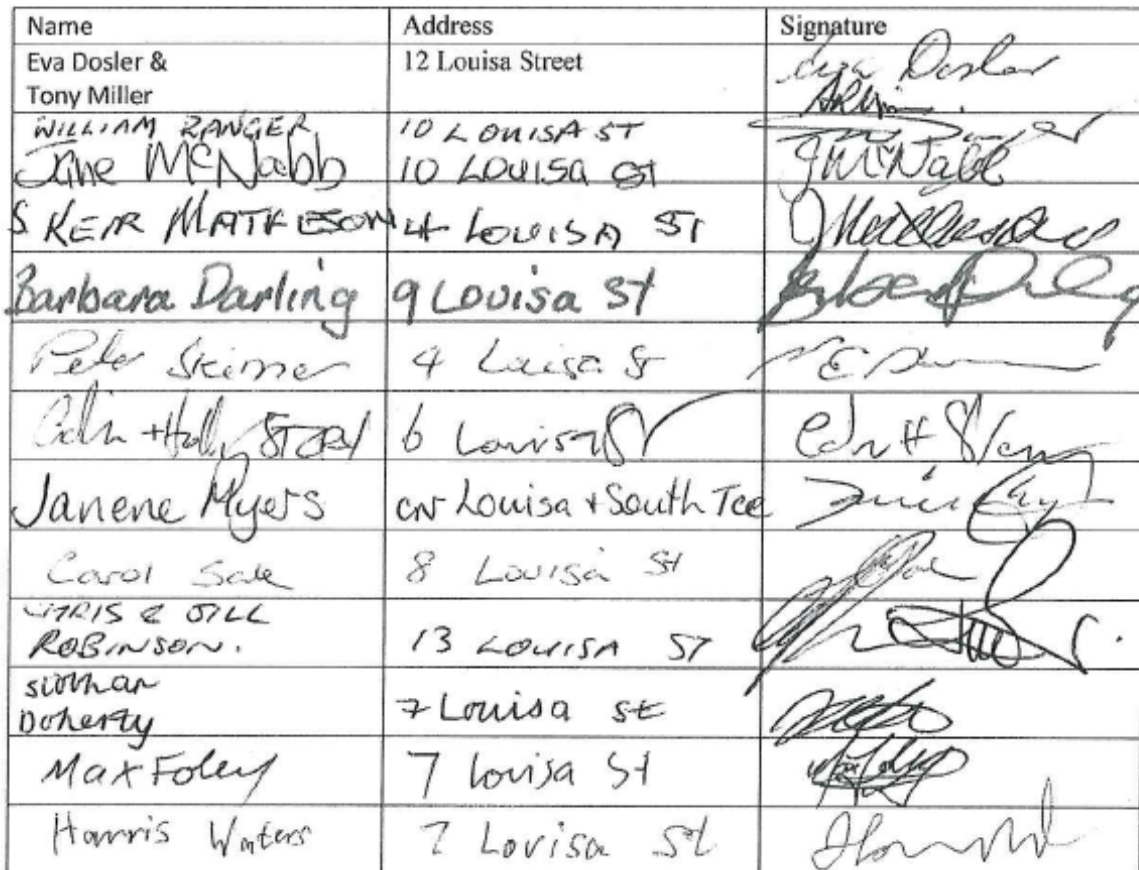 Name Address Signature
Eva Dosler & 12 Louisa Street Eva Dosler
Tony Miller
WILLIAM RANGER 10 LOUISA ST
Jane McNabb 10 Louisa St J McNabb
S KEIR MATHESON 4 LOUISA ST
Barbara Darling 9 Louisa St Barbara Darling
Peter Skinner 4 Louisa St
Colin + Holly STORY 6 Louisa St
Janene Myers cnr Louisa + South Tce
Carol Sale 8 Louisa St
CHRIS & JILL
ROBINSON. 13 LOUISA ST
Siobhan
Doherty 7 Louisa St
Max Foley 7 Louisa St
Harris Waters 7 Louisa St